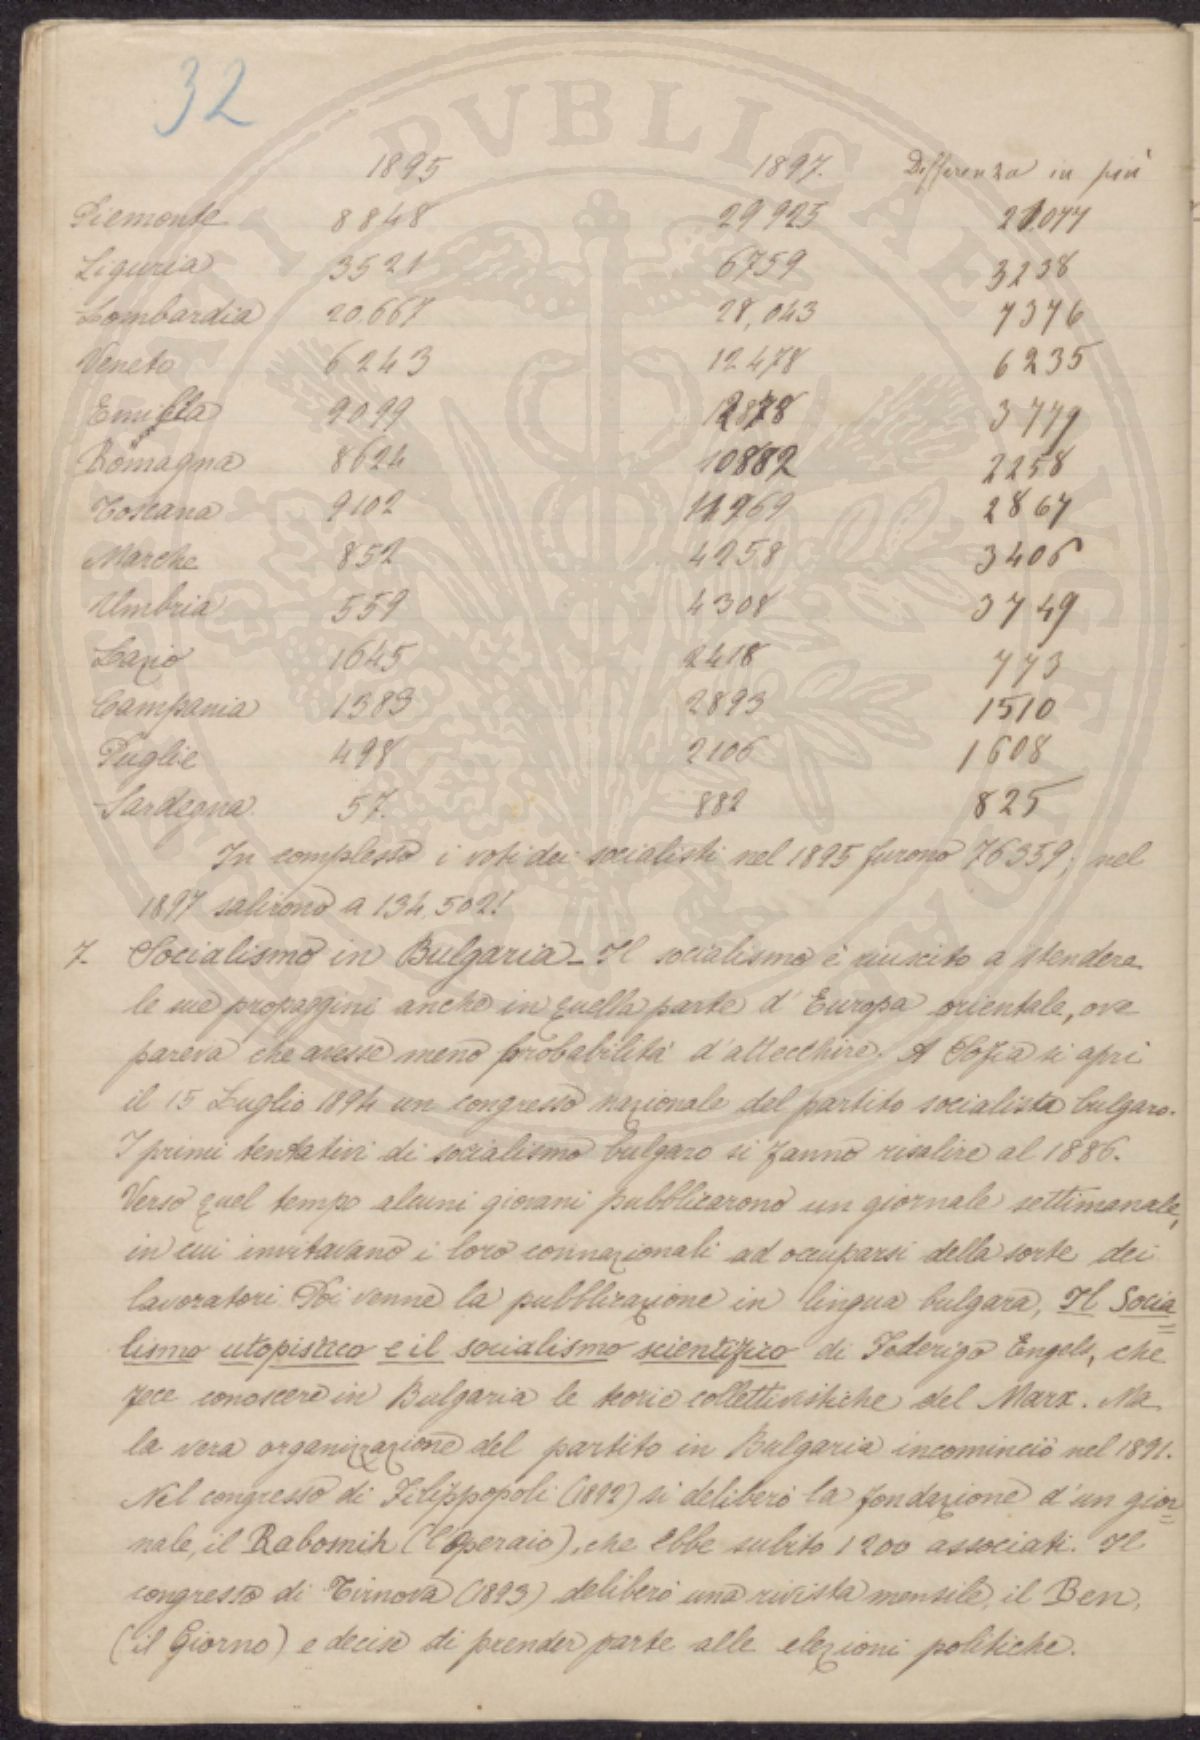 32
1895 1897. Differenza in più
Piemonte 8848 29925 21077
Liguria 3521 6759 3238
Lombardia 20.667 28,043 7376
Veneto 6243 12478 6235
Emilia 9099 12878 3779
Romagna 8624 10882 2258
Toscana 9102 11969 2867
Marche 852 4258 3406
Umbria 559 4308 3749
Lazio 1645 2418 773
Campania 1383 2893 1510
Puglie 498 2106 1608
Sardegna 57. 882 825
In complesso i voti dei socialisti nel 1895 furono 76359; nel
1897 salirono a 134,502!
7. Socialismo in Bulgaria – Il socialismo è riuscito a stendere
le sue propaggini anche in quella parte d'Europa orientale, ove
pareva che avesse meno probabilità d'attecchire. A Sofia si aprì
il 15 Luglio 1894 un congresso nazionale del partito socialista bulgaro.
I primi tentativi di socialismo bulgaro si fanno risalire al 1886.
Verso quel tempo alcuni giovani pubblicarono un giornale settimanale,
in cui invitavano i loro connazionali ad occuparsi della sorte dei
lavoratori. Poi venne la pubblicazione in lingua bulgara, Il Socia
lismo utopistico e il socialismo scientifico di Federigo Engels, che
fece conoscere in Bulgaria le teorie collettivistiche del Marx. Ma
la vera organizzazione del partito in Bulgaria incominciò nel 1891.
Nel congresso di Filippopoli (1892) si deliberò la fondazione d'un gior
nale, il Rabomik (l'Operaio), che ebbe subito 1200 associati. Il
congresso di Tirnova (1893) deliberò una rivista mensile, il Den,
(il Giorno) e decise di prender parte alle elezioni politiche.